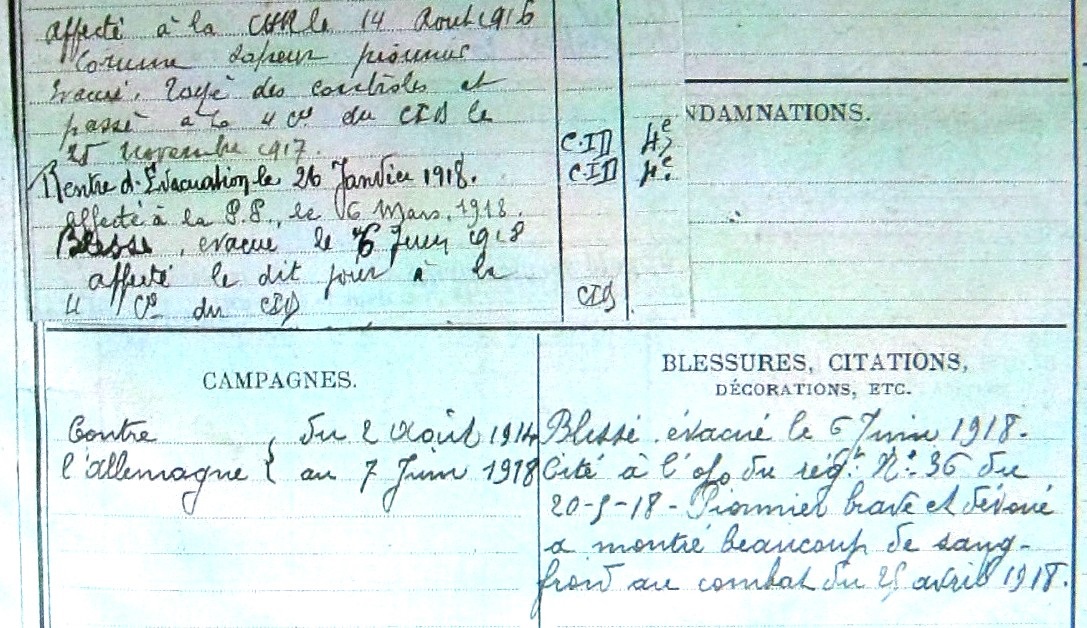 Affecté à la CHR le 14 Aout 1916
Comme sapeur pionnier
Evacué. Rayé des contrôles et
passé à la 4 Cie du CID le
25 novembre 1917.
C.ID 4e
Rentré d'Évacuation le 26 Janvier 1918.
C.ID 4e
affecté à la P.P. le 6 Mars. 1918.
Blessé, évacué le 6 Juin 1918
affecté le dit jour à la
4 Cie du CID
CID
NDAMNATIONS.
CAMPAGNES.
Contre
l'allemagne
du 2 Août 1914
au 7 Juin 1918
BLESSURES, CITATIONS,
DÉCORATIONS, ETC.
Blessé. évacué le 6 Juin 1918.
Cité à l'o/o du régt. No 36 du
20-5-18 - Pionnier brave et dévoué
a montré beaucoup de sang-
froid au combat du 25 avril 1918.